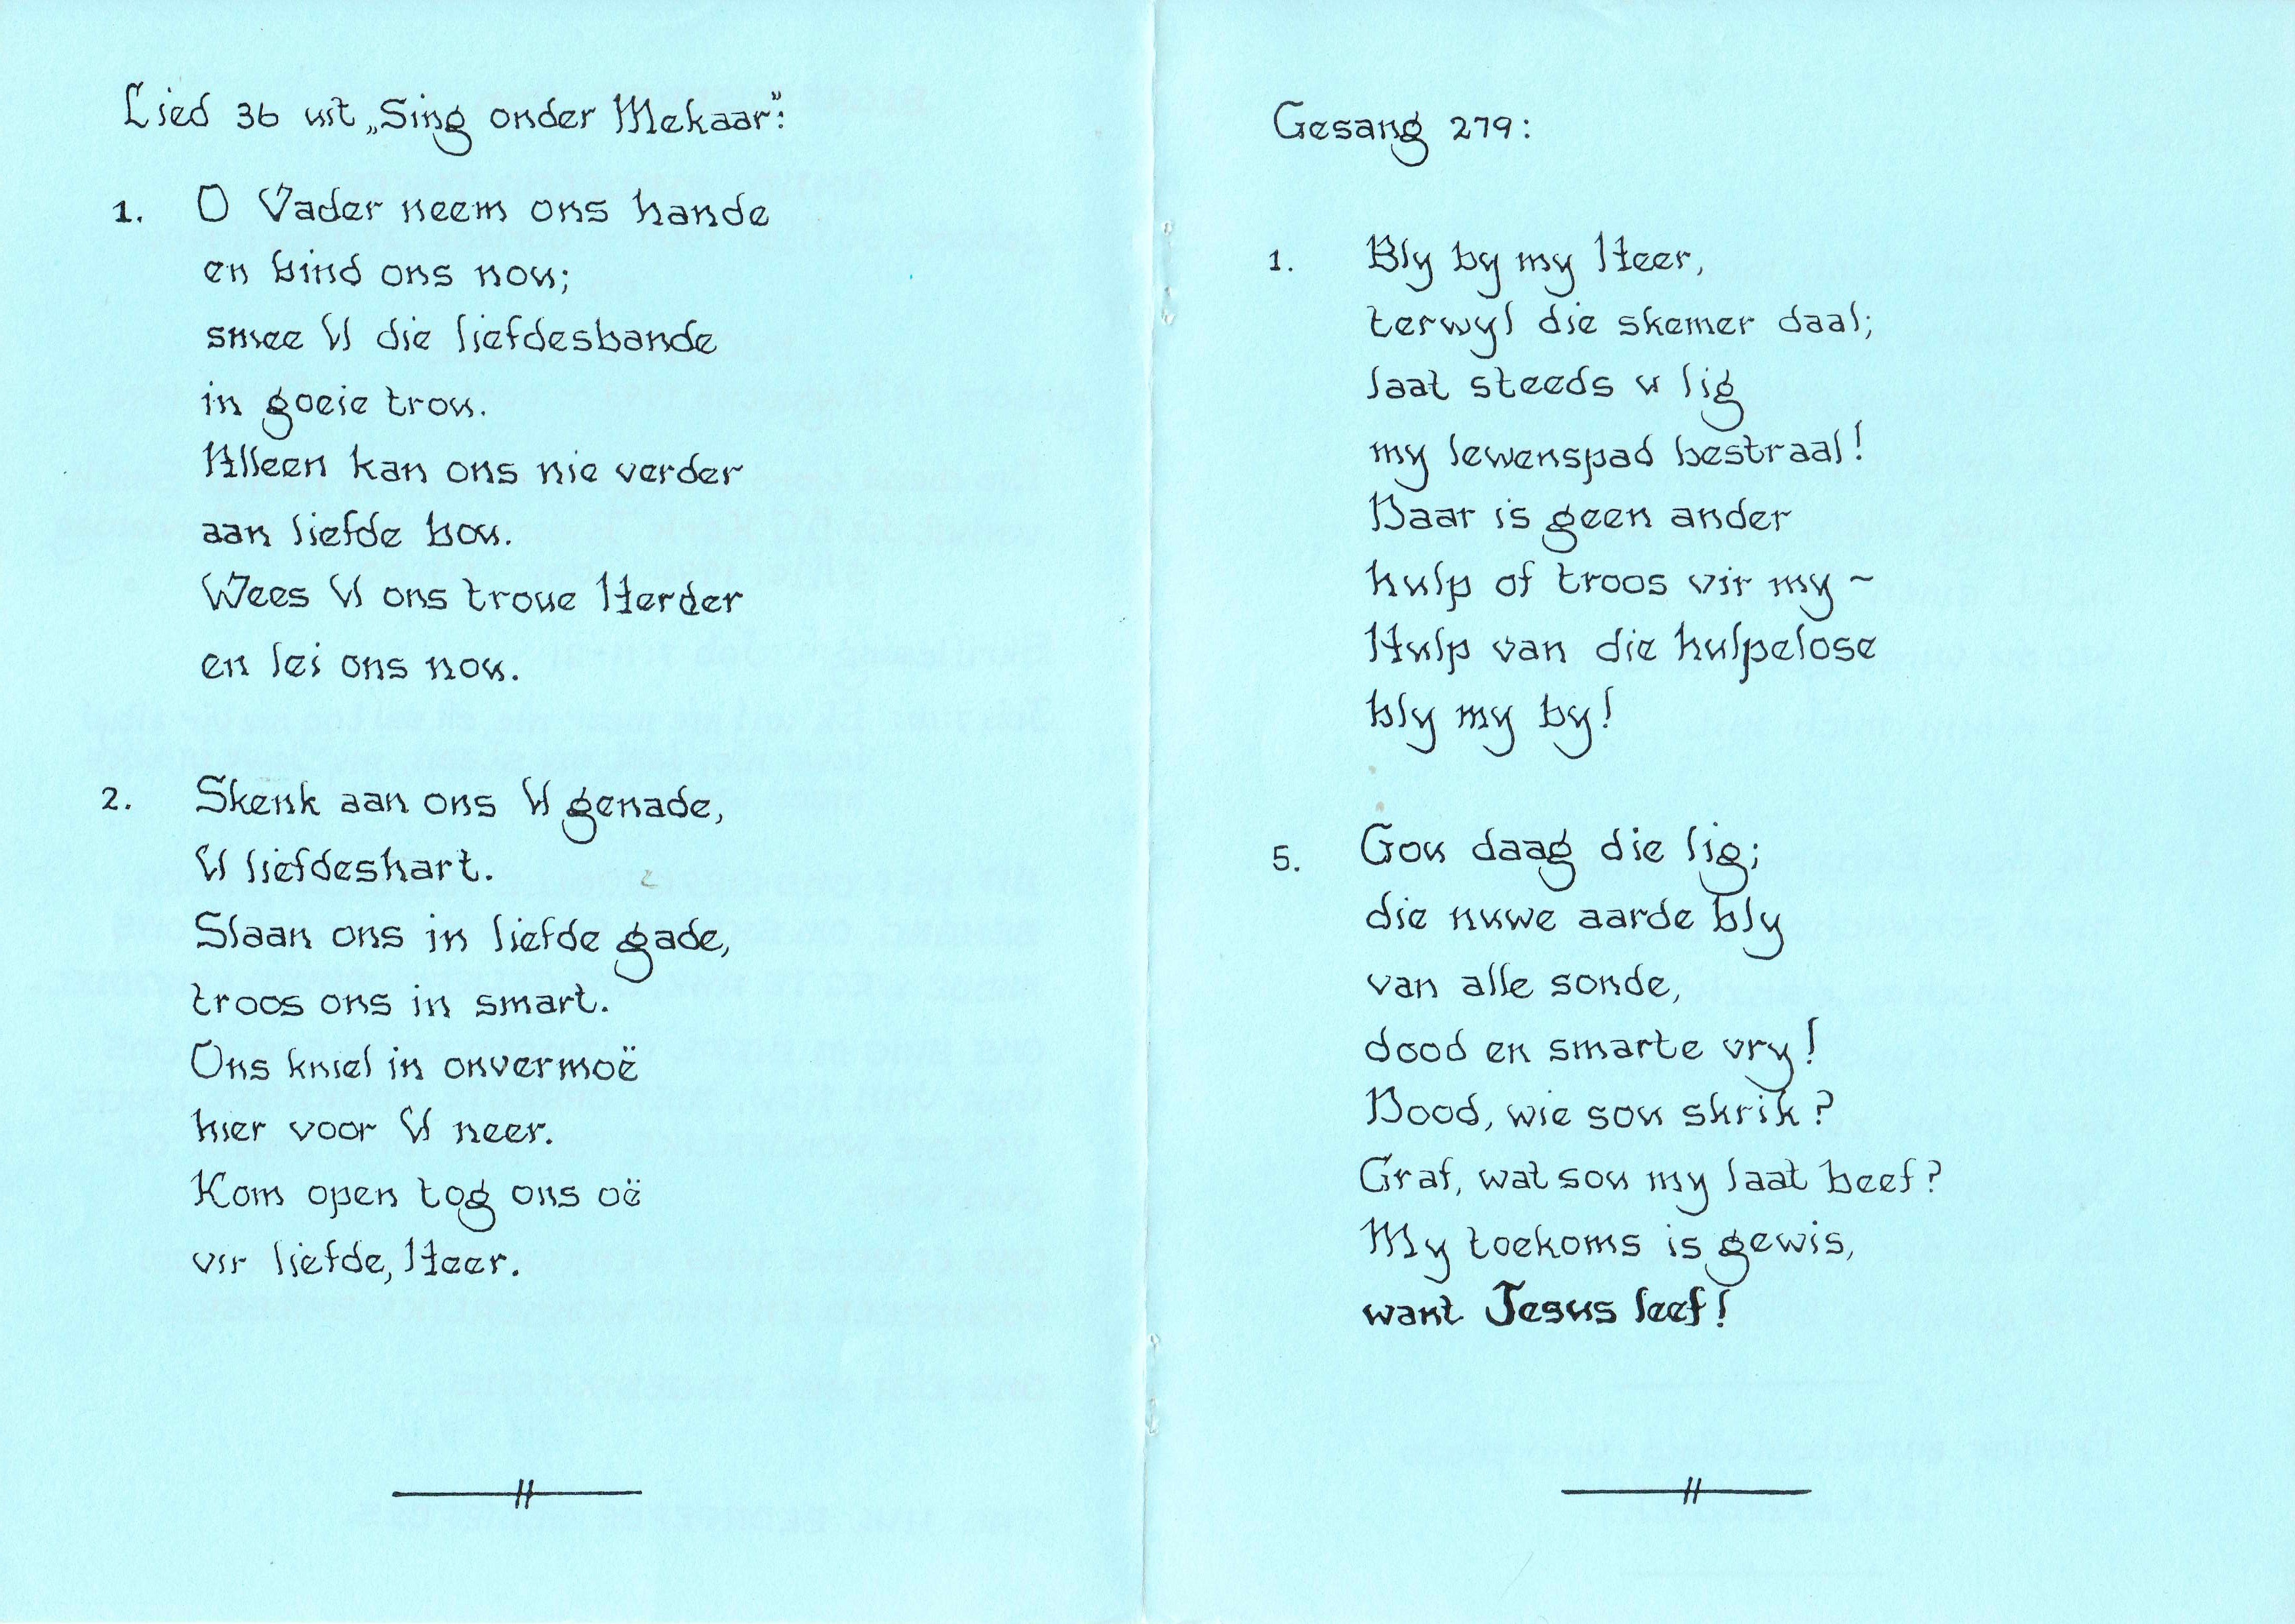 Lied 36 uit „Sing onder Mekaar":
1. O Vader neem ons hande
en bind ons nou;
smee U die liefdesbande
in goeie trou.
Alleen kan ons nie verder
aan liefde bou.
Wees U ons troue Herder
en lei ons nou.
2. Skenk aan ons U genade,
U liefdeshart.
Slaan ons in liefde gade,
troos ons in smart.
Ons kniel in onvermoë
hier voor U neer.
Kom open tog ons oë
vir liefde, Heer.
Gesang 279:
1. Bly by my Heer,
terwyl die skemer daal;
laat steeds u lig
my lewenspad bestraal!
Daar is geen ander
hulp of troos vir my ~
Hulp van die hulpelose
bly my by!
5. Gou daag die lig;
die nuwe aarde bly
van alle sonde,
dood en smarte vry!
Dood, wie sou skrik?
Graf, wat sou my laat beef?
My toekoms is gewis,
want Jesus leef!